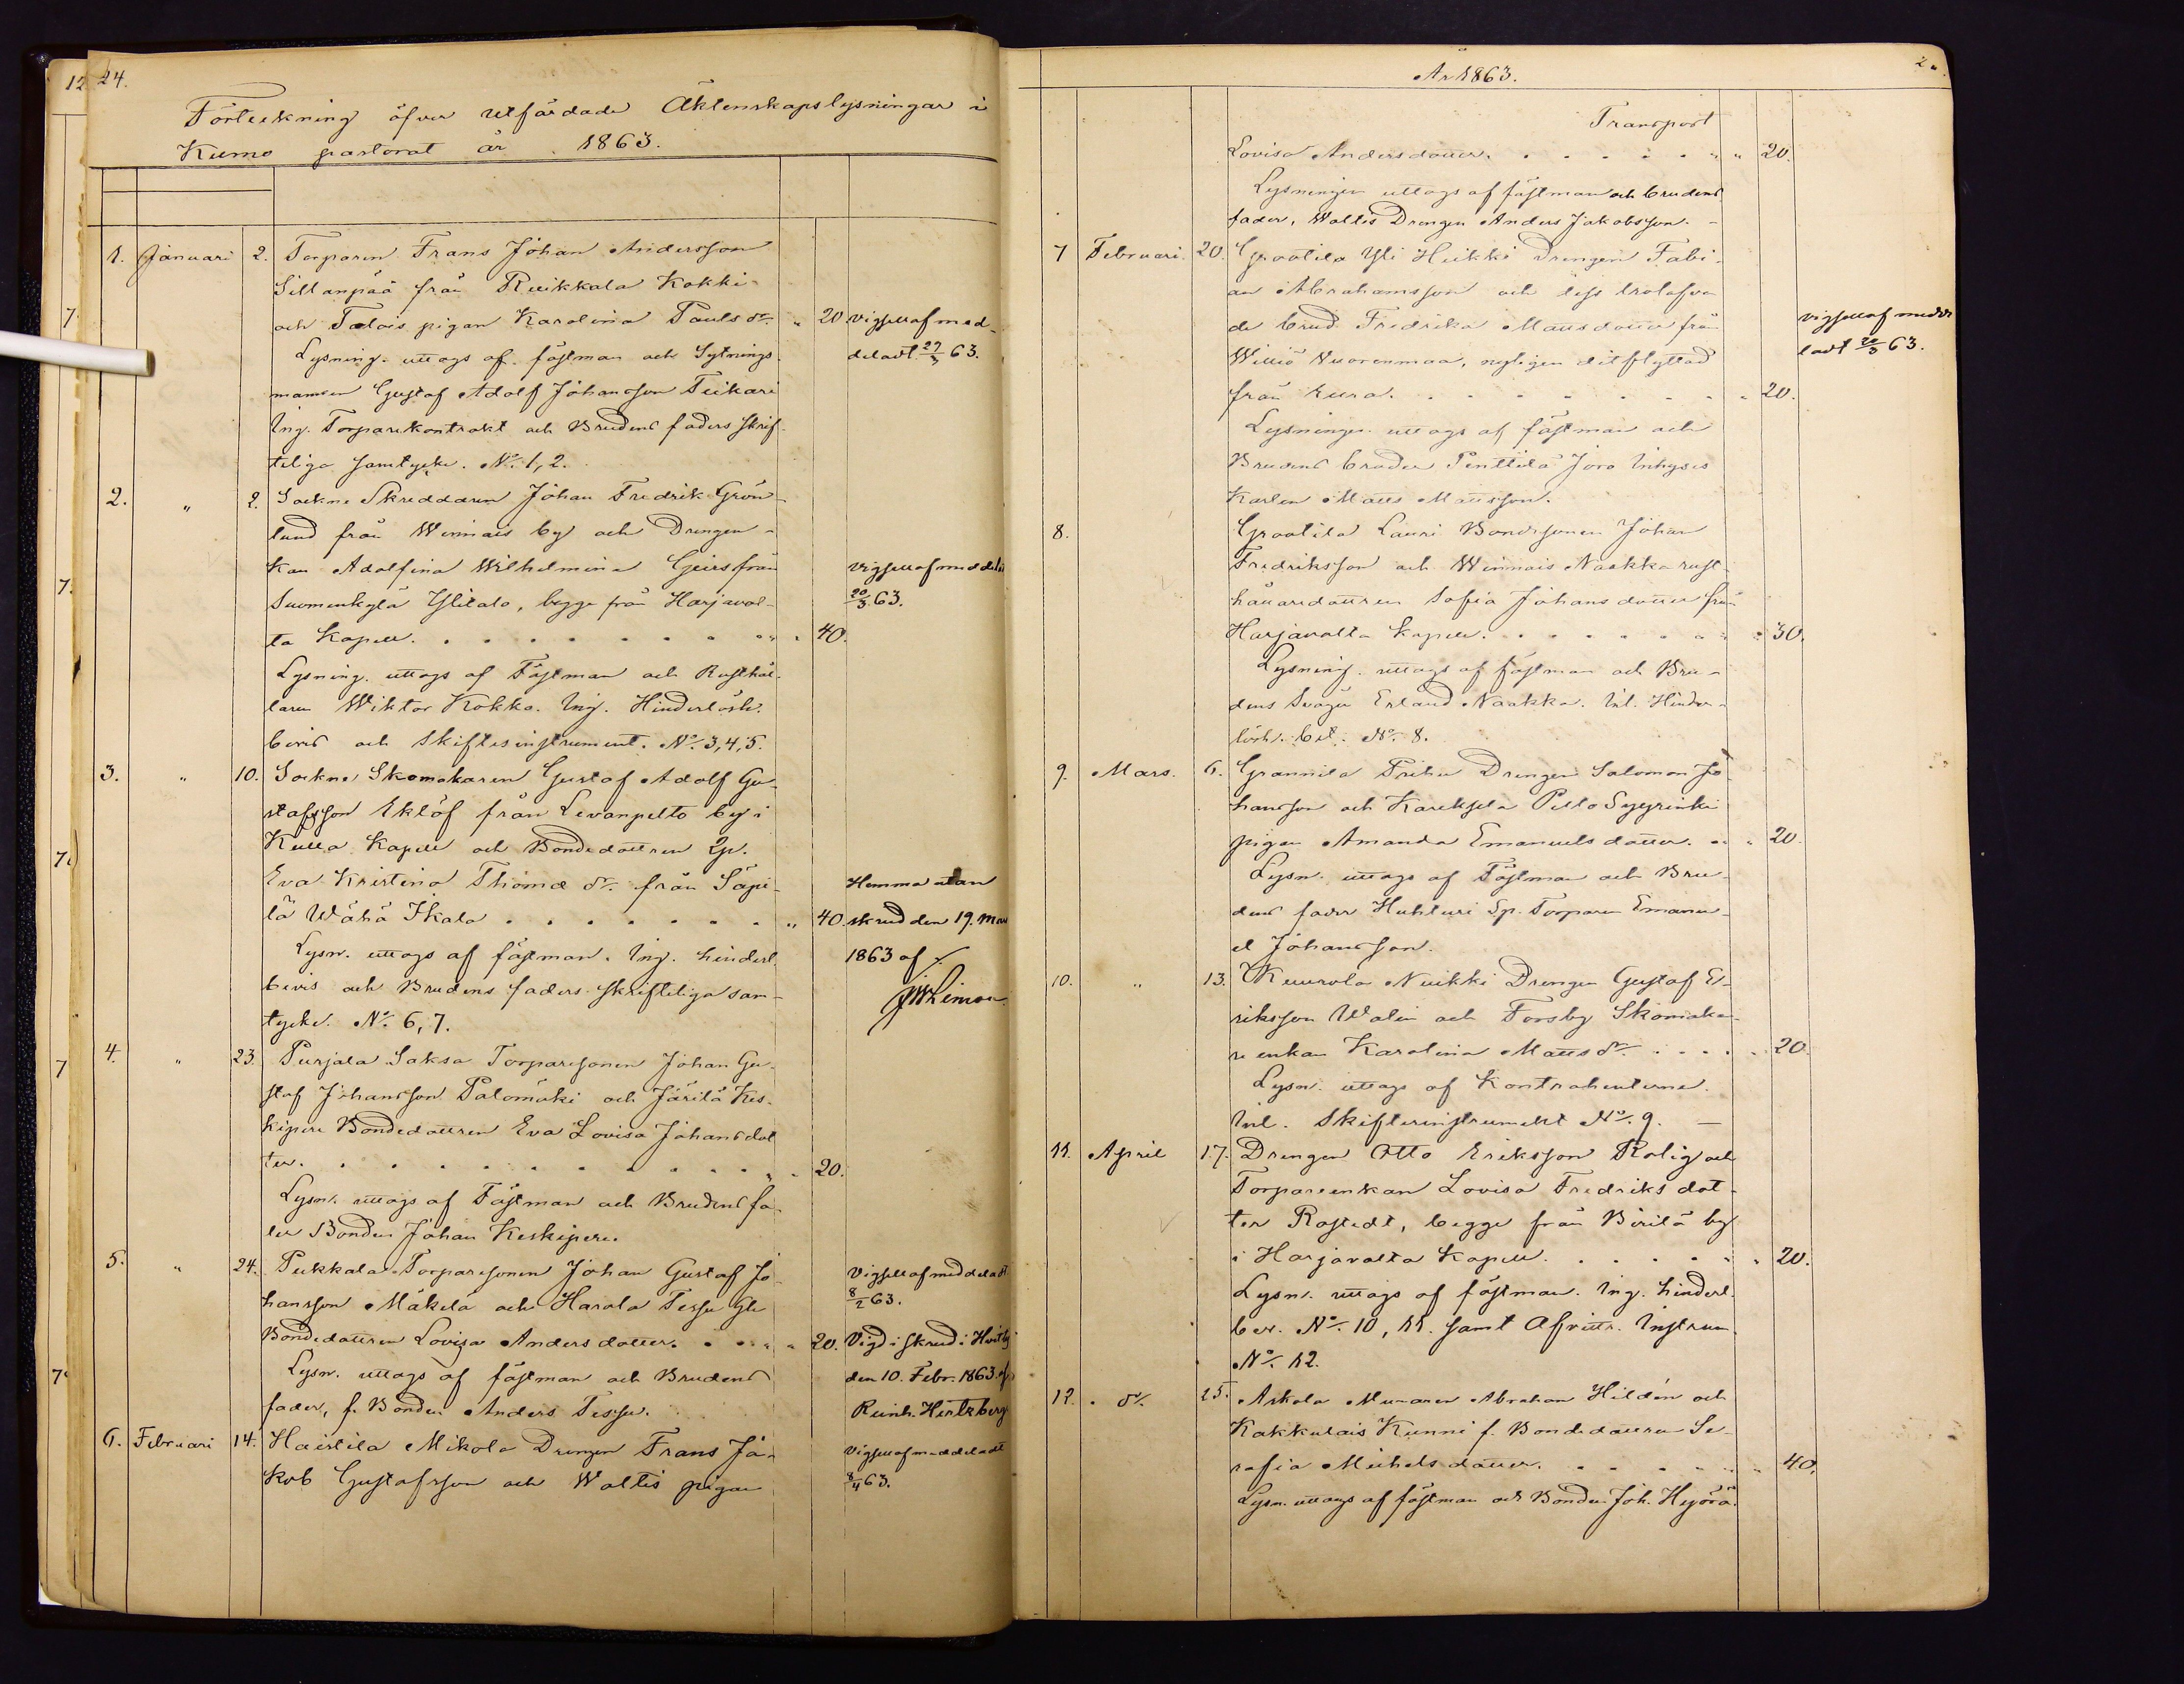 24.
Förteckning öfver utfärdade Äktenskapslysningar i
Kumo pastorat år 1863.
1. Januari 2. Torparen Frans Johan Andersson
Sillanpää från Ruikkala Kokki
och Talois pigan Karolina Pauls dr. " 20 vigselaf med-
Lysning. uttogs af fästman och Sytnings- deladt 27/3 63.
mannen Gustaf Adolf Johansson Teikari
Ing. Torparekontrakt och Brudens faders skrif-
teliga samtycke. No. 1, 2.
2. " 2. Sockne Skreddaren Johan Fredrik Grön-
lund från Winnais by och Drengen-
kan Adolfina Wilhelmina Geirs från vigselaf meddela
Suomenkylä Ylitalo, begge från Harjaval- 20/3 63.
ta Kapell. . . . . . . . . " 40.
Lysning. uttogs af Fästman och Rusthål-
laren Wiktor Kokko. Ing. Hinderlösh.
bevis och Skiftesinstrument. No. 3, 4, 5.
3. " 10. Sockne Skomakaren Gustaf Adolf Gu-
stafsson Eklöf från Levanpelto by i
Kulla Kapell och Bondedottren Qv.
Eva Kristina Thomæ dr. från Säpi- Hemma utan
lä Wähä Ikala . . . . . . . " 40. skrud den 19. Mars
Lysn. uttogs af fästman. Ing. hinderl. 1863 af
bevis och Brudens faders skrifteliga sam-
tycke. No. 6, 7.
4. " 23. Purjala Saksa Torparesonen Johan Gu-
staf Johansson Palomäki och Järilä Kes-
kipere Bondedottren Eva Lovisa Johansdot
ter. . . . . . . . . . . " 20.
Lysn. uttogs af Fästman och Brudens fa-
der Bonden Johan Keskipere.
5. " 24. Pukkala Torparesonen Johan Gustaf Jo- Vigselaf meddeladt
hansson Mäkelä och Harola Tessu Yli 8/2 63.
Bondedottren Lovisa Andersdotter. . . " 20. Vigd i skrud i Hvitby
Lysn. uttogs af fästman och Brudens den 10. Febr. 1863. af
fader, f. Bonden Anders Tessu. Reinh. Hertzberg
6. Februari 14. Haistila Mikola Drengen Frans Ja- Vigselaf meddeladt
kob Gustafsson och Waltis pigan 8/4 63.
År 1863.
Transport
Lovisa Andersdotter. . . . . . " " 20.
Lysningen uttogs af fästman och brudens
fader, Waltis Drengen Anders Jakobsson. -
7 Februari. 20. Groatila Yli Heikki Drengen Fabi-
an Abrahamsson och dess trolofva
de brud Fredrika Mattsdotter från vigselaf medde
Williö Nuorenmaa, nyligen ditflyttad ladt 20/3 63.
från Eura. . . . . . . . . " 20.
Lysningen uttogs af fästman och
Brudens broder Penttilä Jora Inhyses
Karlen Matts Mattsson.
8. Groatila Lauri Bondesonen Johan
Fredriksson och Winnais Naakka rust-
hållaredottren Sofia Johansdotter från
Harjavalta Kapell. . . . . . . " 30.
Lysning. uttogs af fästman och Bru-
dens Svåger Erland Naakka. Inl. Hinder-
lösh. bet. No. 8.
9. Mars. 6. Grannila Prihu Drengen Salomon Jo-
hansson och Kareksela Pello Syyrinki
pigan Amanda Emanuelsdotter. . . " 20
Lysn. uttogs af Fästman och Bru-
dens fader Huhturi Sp. Torparen Emanu-
el Johansson.
10. " 13. Kuurola Nuikki Drengen Gustaf E-
riksson Walin och Forsby Skomaka-
re enkan Karolina Matts dr. . . . . 20.
Lysn. uttogs af Kontrahenterne.
Inl. Skiftesinstrumentet No. 9. -
11. April 17. Drengen Otto Eriksson Rolig och
Torpareenkan Lovisa Fredriks dot-
ter Rostedt, begge från Pirilä by
i Harjavalta Kapell. . . . . . " 20.
Lysn. uttogs af fästman. Ing. hinderl.
bev. No. 10, 11. samt Afvittr. Instrum.
No. 12.
12. do. 25. Askola Muraren Abraham Hildén och
Kakkulais Kunni f. Bondedottren Se-
rafia Michelsdotter. . . . . . " 40.
Lysn. uttogs af fästman och Bonden Joh. Hyörä.